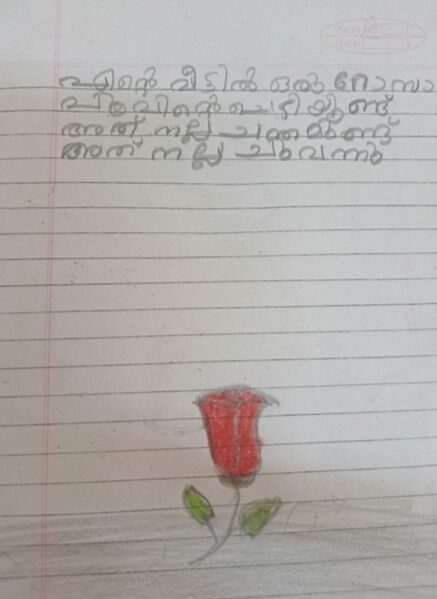 എന്റെ വീട്ടിൽ ഒരു റോസാ
പൂവിന്റെ ചെടിയുണ്ട്
അത് നല്ല ചന്തമുണ്ട്
അത് നല്ല ചുവന്നു